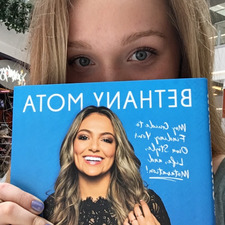 BETHANY MOTA
My Guide to
Finding Your
Own Style,
Life, and
Motavation!